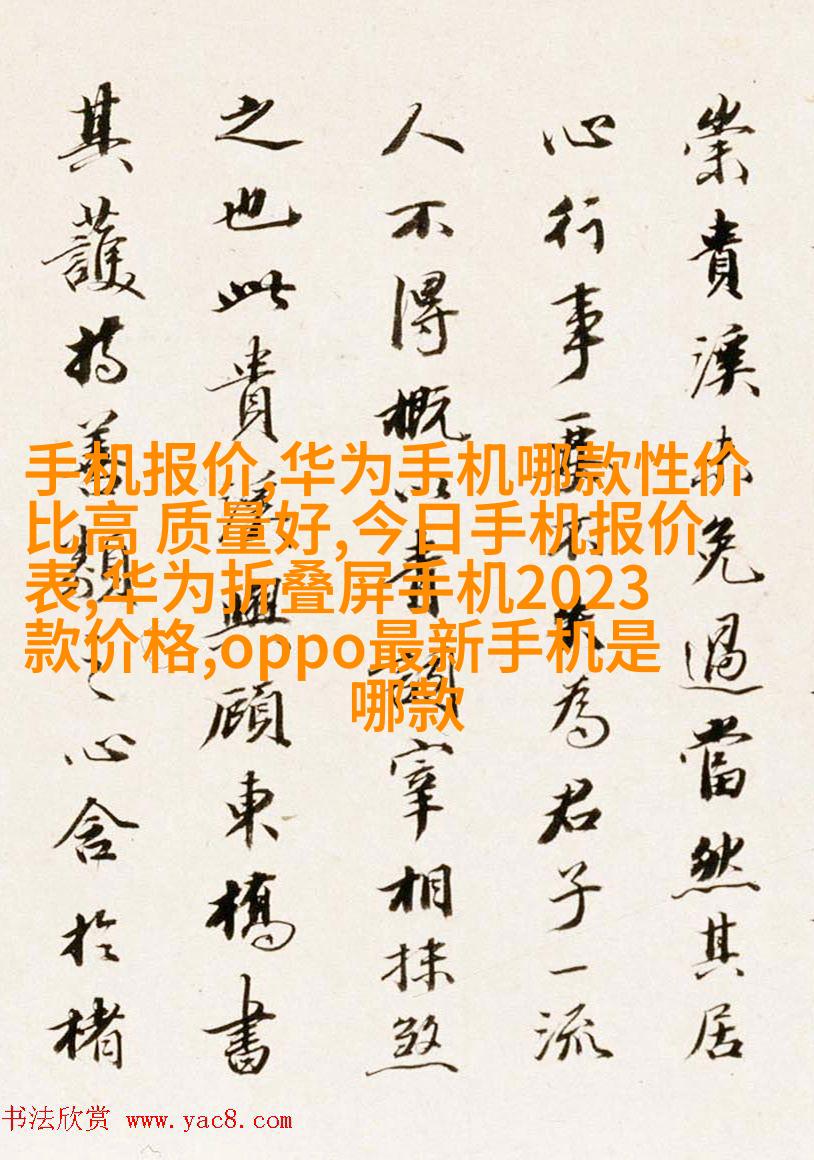 崇貴溪未免過當然其居
心行事要不失為君子一流
人不得概以青詞宰相抹煞
之也此貴溪與顧東橋書
其護持善類之心含於楮
手机报价,华为手机哪款性价
比高 质量好,今日手机报价
表,华为折叠屏手机2023
款价格,oppo最新手机是
哪款
书法欣赏 www.yac8.com